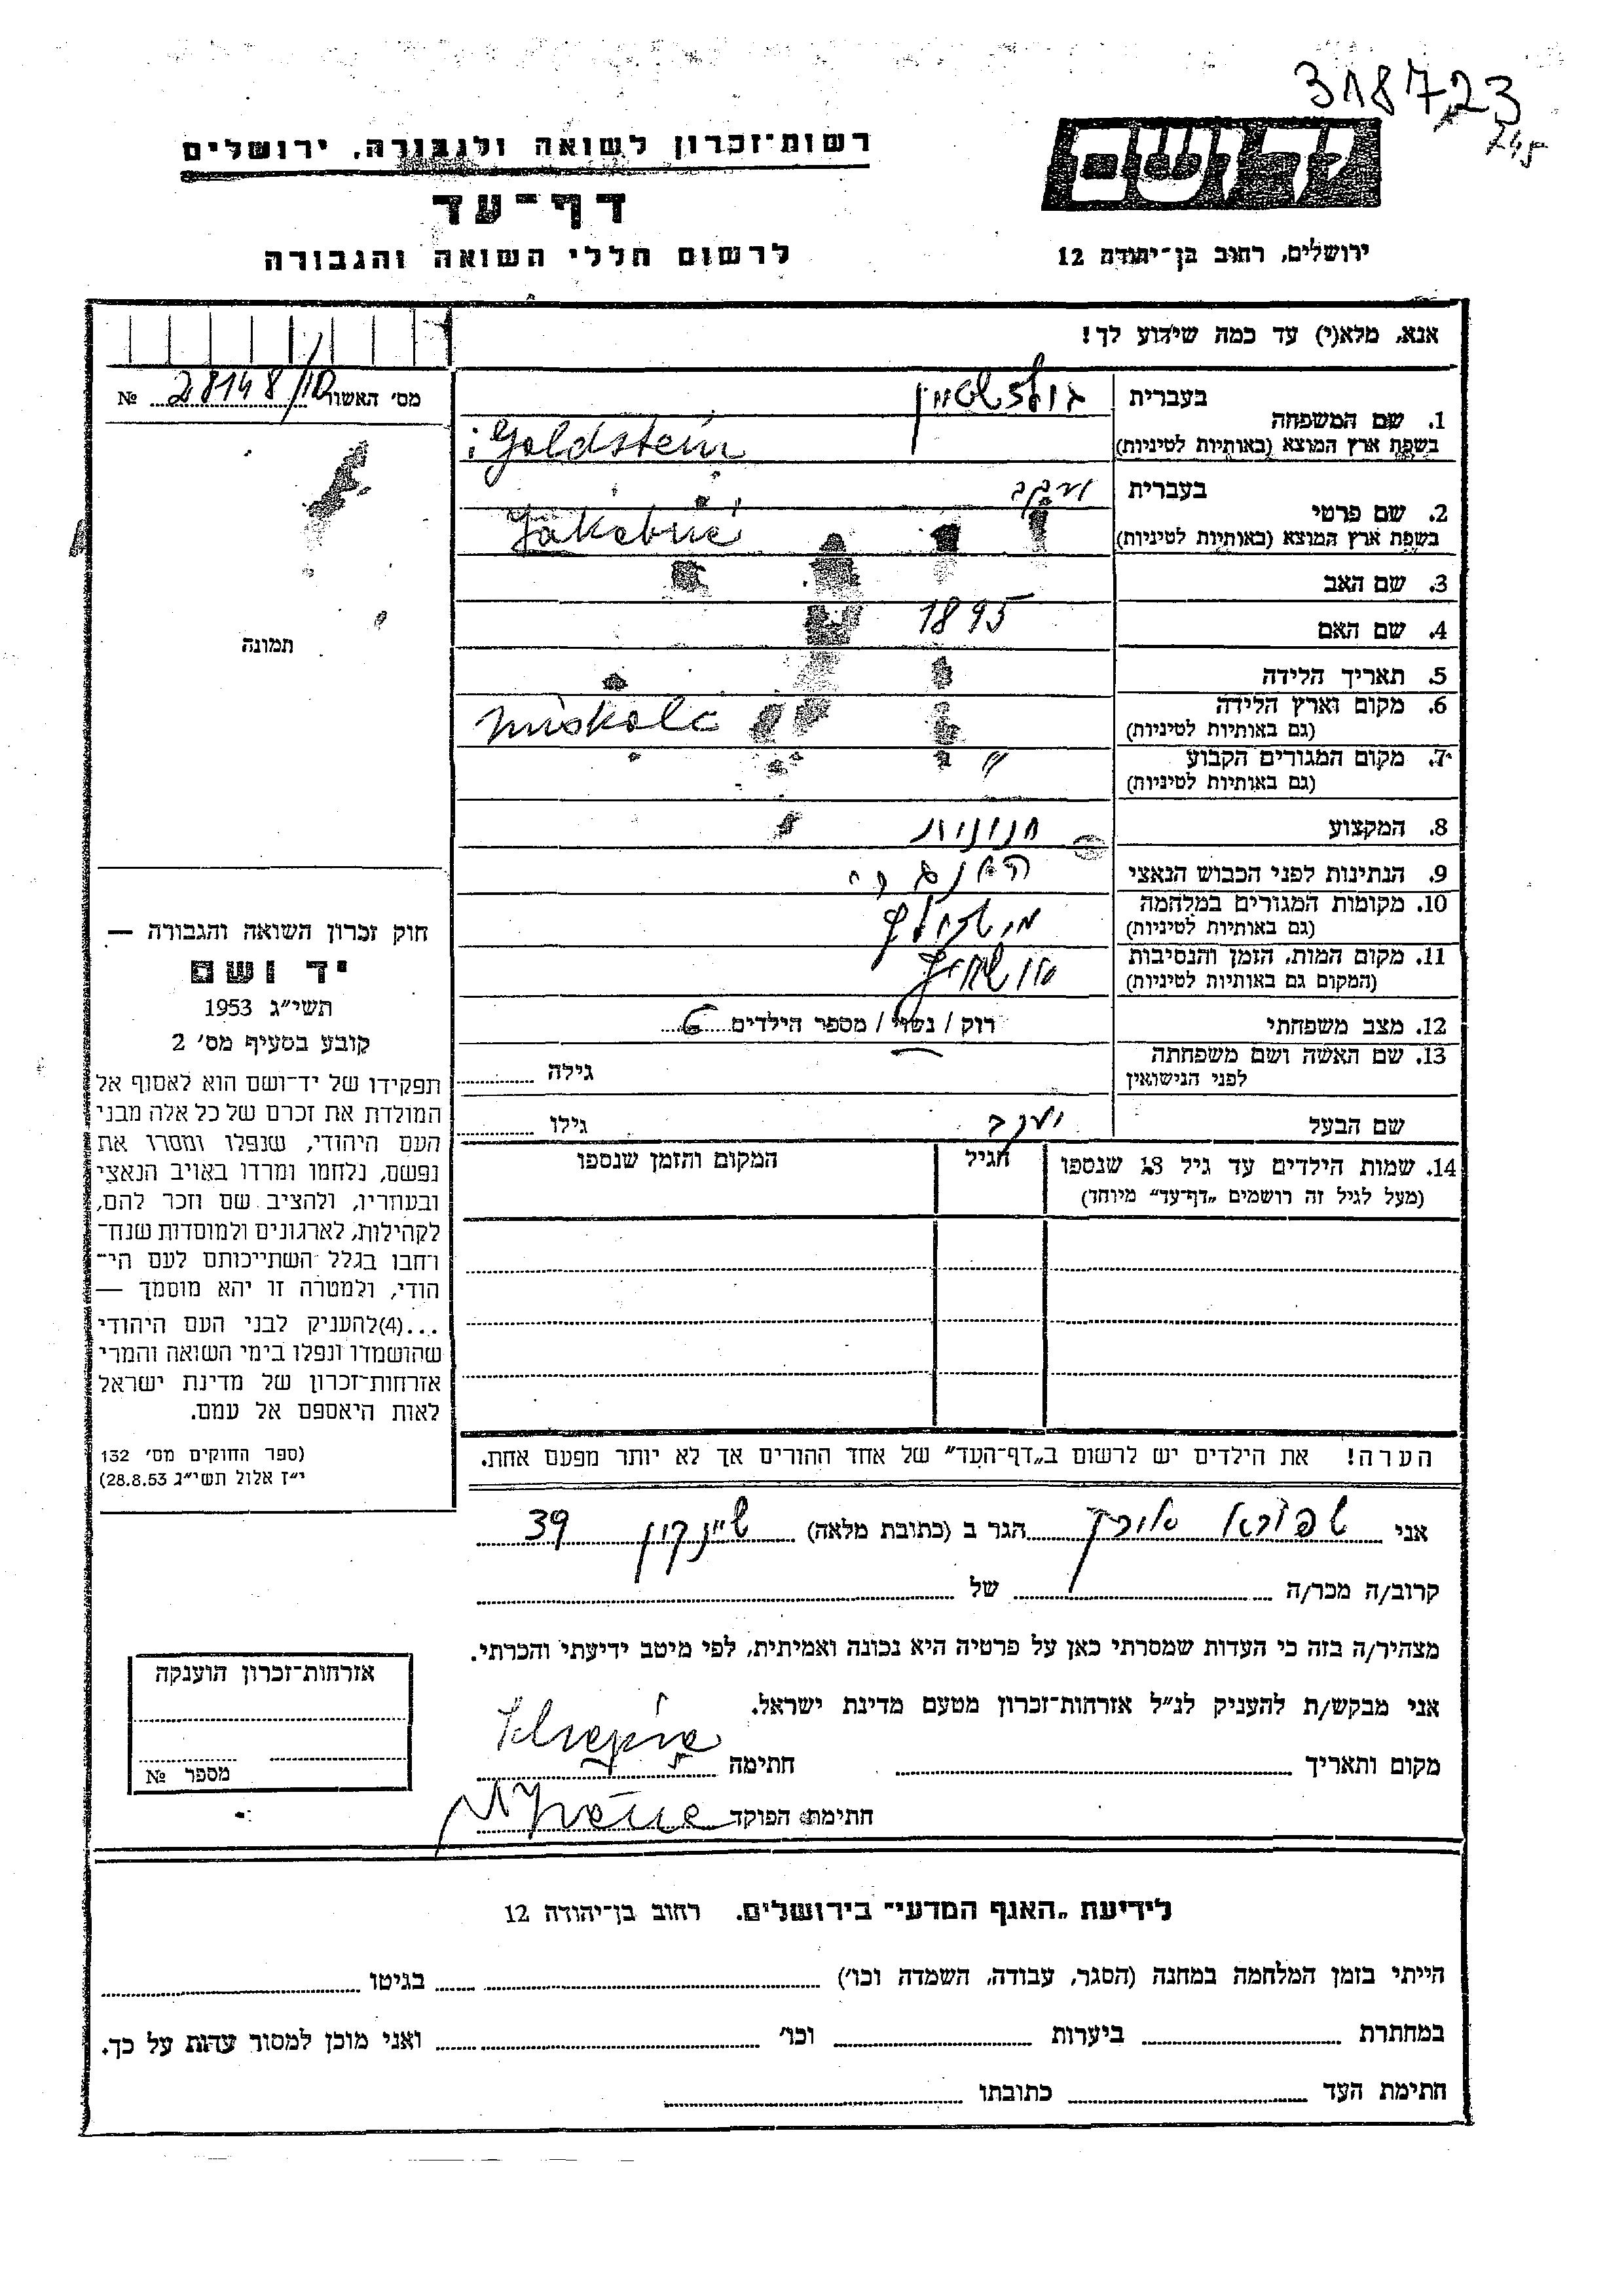 318723
745
רשות־זכרון לשואה ולגבורה, ירושלים
דף־עד
לרשום חללי השואה והגבורה
יד ושם
ירושלים, רחוב בן־יהודה 12
אנא, מלא(י) עד כמה שידוע לך!
מס׳ האשור 28148/ №
תמונה
1. שם המשפחה
בעברית גולדשטיין
בשפת ארץ המוצא (באותיות לטיניות) Goldstein
2. שם פרטי
בעברית יעקב
בשפת ארץ המוצא (באותיות לטיניות) Jakabné
3. שם האב
4. שם האם 1895
5. תאריך הלידה
6. מקום וארץ הלידה
(גם באותיות לטיניות) Miskolc
7. מקום המגורים הקבוע
(גם באותיות לטיניות) "
8. המקצוע חנונית
9. הנתינות לפני הכבוש הנאצי הונגרי
10. מקומות המגורים במלחמה
(גם באותיות לטיניות) מישקולץ
11. מקום המות, הזמן והנסיבות
(המקום גם באותיות לטיניות) אושויץ
12. מצב משפחתי רוק / נשוי / מספר הילדים 6
13. שם האשה ושם משפחתה
לפני הנישואין גילה
שם הבעל יעקב גילו
14. שמות הילדים עד גיל 18 שנספו הגיל המקום והזמן שנספו
(מעל לגיל זה רושמים „דף־עד” מיוחד)
הערה! את הילדים יש לרשום ב„דף־העד” של אחד ההורים אך לא יותר מפעם אחת.
חוק זכרון השואה והגבורה —
יד ושם
תשי״ג 1953
קובע בסעיף מס׳ 2
תפקידו של יד־ושם הוא לאסוף אל
המולדת את זכרם של כל אלה מבני
העם היהודי, שנפלו ומסרו את
נפשם, נלחמו ומרדו באויב הנאצי
ובעוזריו, ולהציב שם וזכר להם,
לקהילות, לארגונים ולמוסדות שנח־
רחבו בגלל השתייכותם לעם הי־
הודי, ולמטרה זו יהא מוסמך —
...(4)להעניק לבני העם היהודי
שהושמדו ונפלו בימי השואה והמרי
אזרחות־זכרון של מדינת ישראל
לאות היאספם אל עמם.
(ספר החוקים מס׳ 132
י״ז אלול תשי״ג 28.8.53)
אני שפירא הגר ב (כתובת מלאה) שינקין 39
קרוב/ה מכר/ה של
מצהיר/ה בזה כי העדות שמסרתי כאן על פרטיה היא נכונה ואמיתית, לפי מיטב ידיעתי והכרתי.
אני מבקש/ת להעניק לנ״ל אזרחות־זכרון מטעם מדינת ישראל.
מקום ותאריך חתימה
חתימת הפוקד
אזרחות־זכרון הוענקה
מספר №
לידיעת „האגף המדעי” בירושלים. רחוב בן־יהודה 12
הייתי בזמן המלחמה במחנה (הסגר, עבודה, השמדה וכו׳) בגיטו
במחתרת ביערות וכו׳ ואני מוכן למסור עדות על כך.
חתימת העד כתובתו